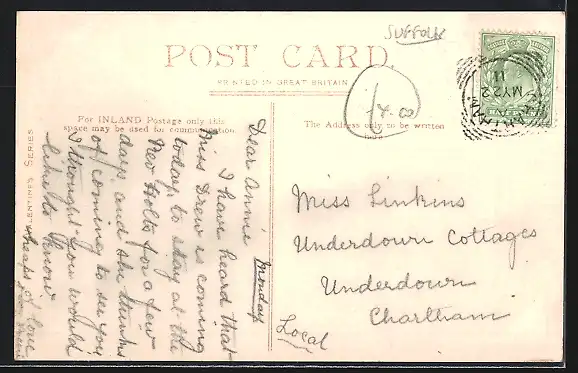 SUFFOLK
POST CARD.
PRINTED IN GREAT BRITAIN
For INLAND Postage only this
space may be used for communication
The Address only to be written
here
/4.00
MY 22
11
SERIES
Monday
Dear Annie
I have heard that
Miss Drew is coming
today to stay at the
New Holts for a few
days and she thinks
of coming to see you
I thought you would
like to know
heaps of love
Miss Linkins
Underdown Cottages
Underdown
Chartham
Local